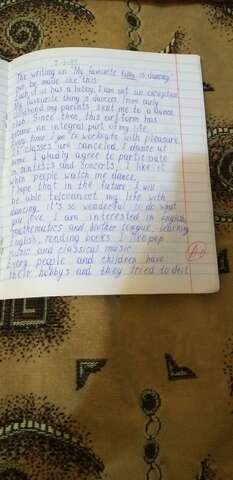 The writing on "My favourite hobby is dancing"
can be made like this
Each of us has a hobby. I am not an exception
My favourite thing is dances. From early
childhood my parents sent me to a dance
club. Since then, this art form has
become an integral part of my life.
Every time I go to workouts with pleasure
If classes are canceled I dance at
home. I gladly agree to participate
in contests and concerts. I like it
when people watch me dance.
I hope that in the future I will
be able to connect my life with
dancing. It's so wonderful to do what
you love. I am interested in English,
mathematics and Mother tongue, learning
English, reading books I like pop
music and classical music
Every people and children have
their hobbys and they tried to do it